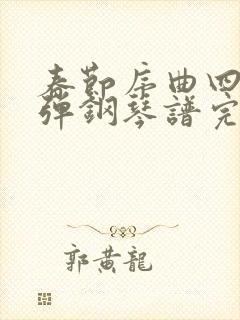 春節序曲四
彈鋼琴譜完
郭黃龍